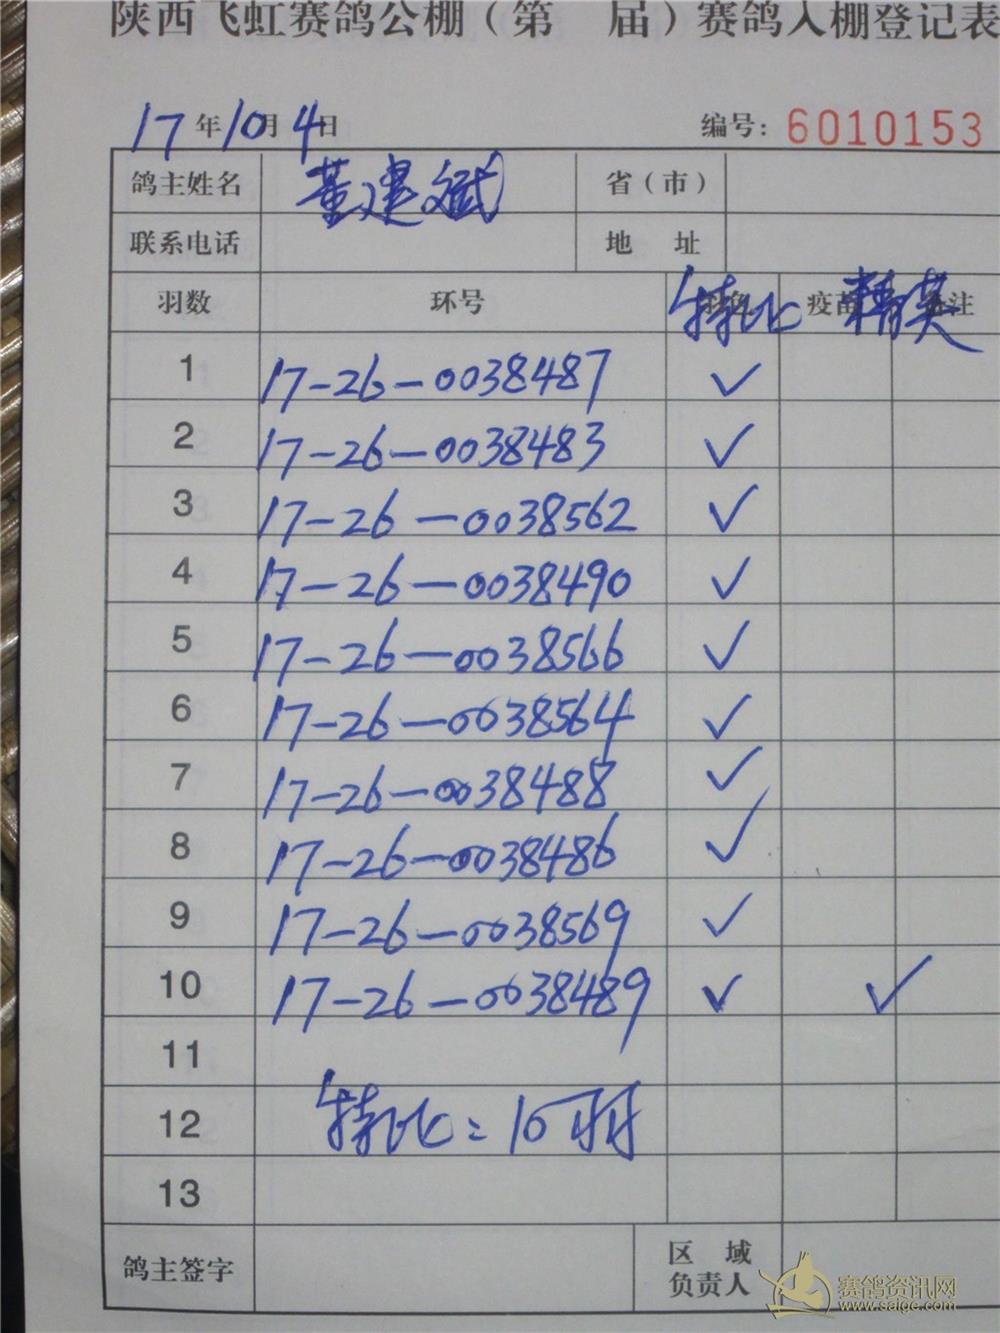 陕西飞虹赛鸽公棚（第 届）赛鸽入棚登记表
17年10月4日 编号：6010153
鸽主姓名 董建斌 省（市）
联系电话 地 址
羽数 环号 特比 疫苗 精英 备注
1 17-26-0038487 ✓
2 17-26-0038483 ✓
3 17-26-0038562 ✓
4 17-26-0038490 ✓
5 17-26-0038566 ✓
6 17-26-0038564 ✓
7 17-26-0038488 ✓
8 17-26-0038486 ✓
9 17-26-0038569 ✓
10 17-26-0038489 ✓ ✓
11
12 特比：10羽
13
鸽主签字 区 域
负责人
赛鸽资讯网
www.saige.com